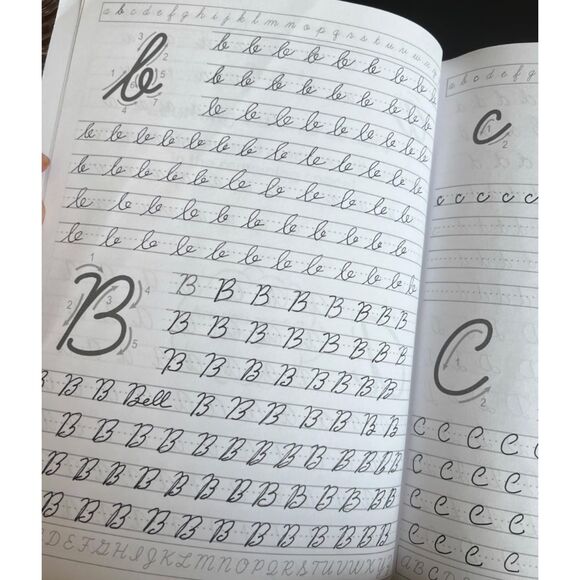 a b c d e f g h i j k l m n o p q r s t u v w
b
3 2 1 5 6 4 7
b b b b b b b b
b b b b b b b b b
b b b b b b b b
b b b b b b b b b b b b b
b b b b b b b b b b b
b b b b b b b b b b b
b b b b b b b b b b b
B
1 2 3 4 5
B B B B B B B B
B B B B B B B B
B B B B B B B B
B B B Bell B B B B B B B
B B B B B B B B B B B B B
B B B B B B B B B B B B B
B B B B B B B B B B B B
D E F G H I J K L M N O P Q R S T U V W X Y
a b c d e f g
c
1 2
c c c c c
C
1 2
C C C C
C C C C
C C C C
C C C C
A B C D E F G